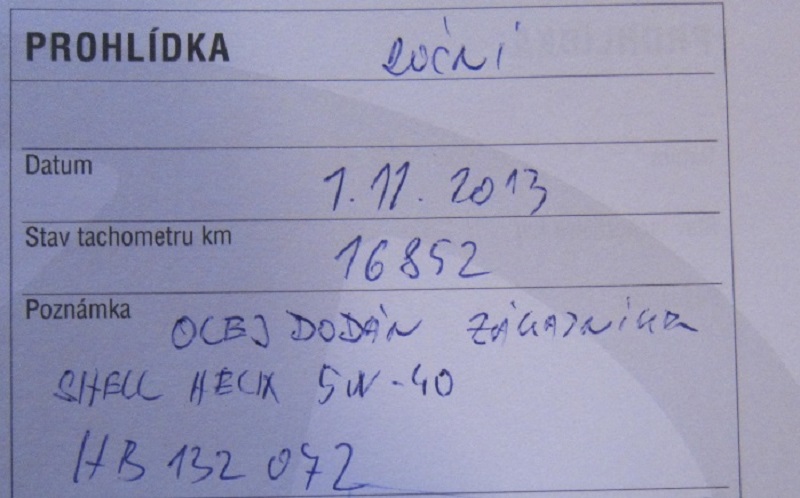 PROHLÍDKA ROČNÍ
Datum 1.11.2013
Stav tachometru km 16852
Poznámka OLEJ DODÁN ZÁKAZNÍKEM
SHELL HELIX 5W-40
HB 132 072